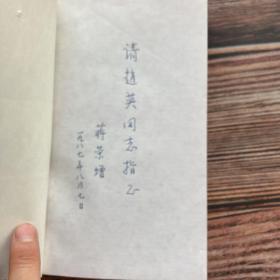 请赵英同志指正
蒋荣增
一九八七年八月七日